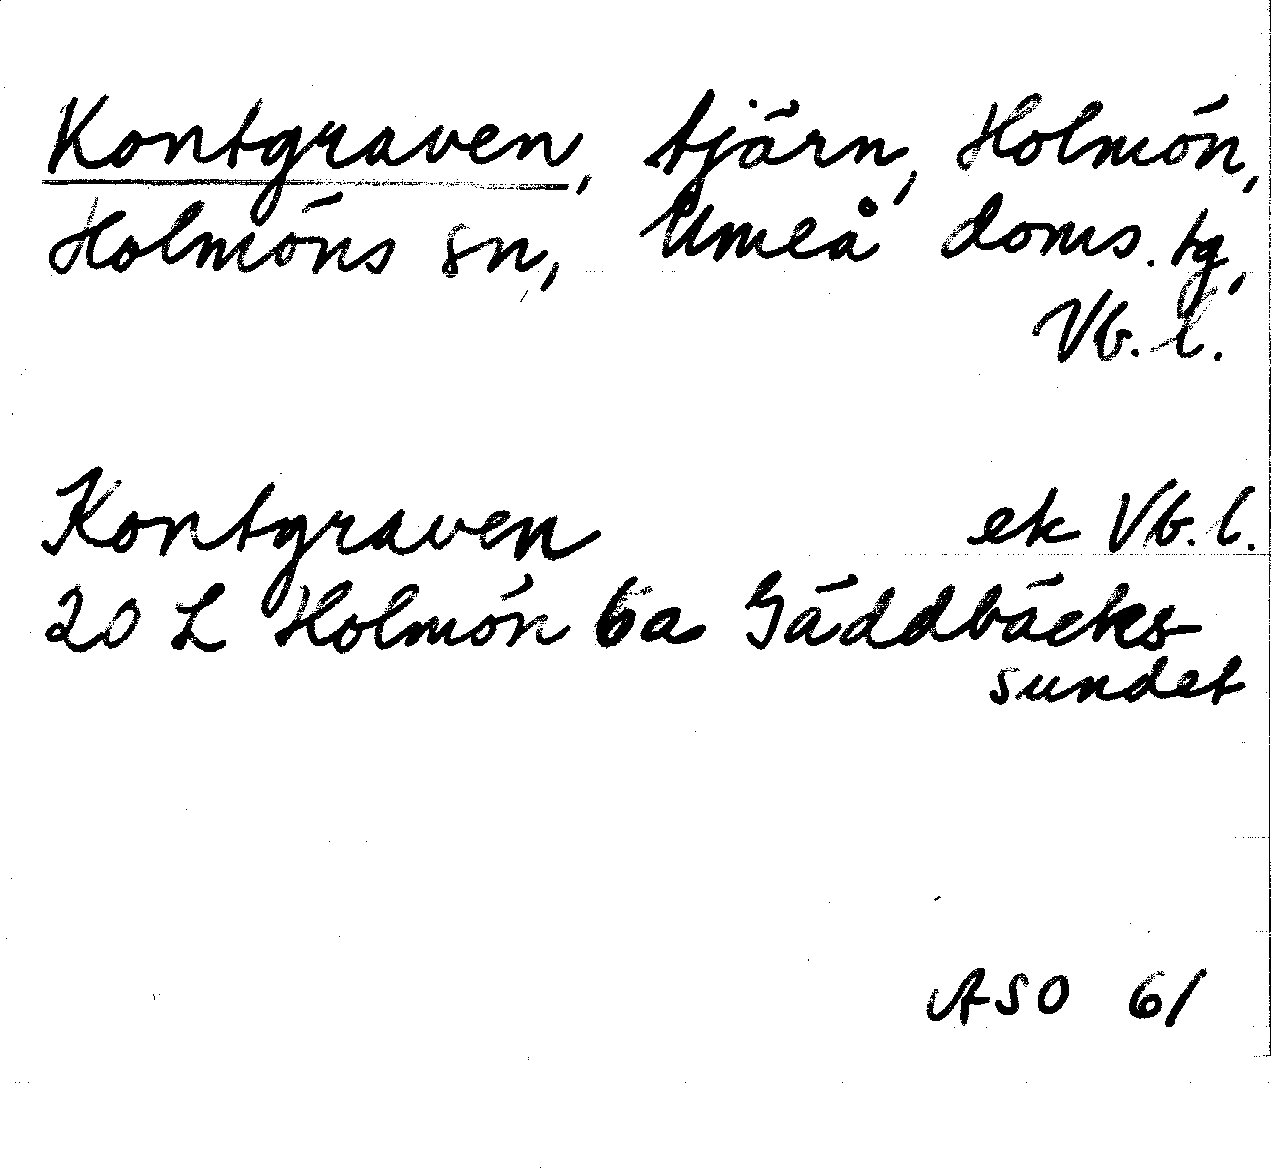 Kontgraven, tjärn, Holmön,
Holmöns sn, Umeå doms. tg,
Vb. l.
Kontgraven ek Vb. l.
20 L Holmön 6a Gäddbäcks-
sundet
ASO 61